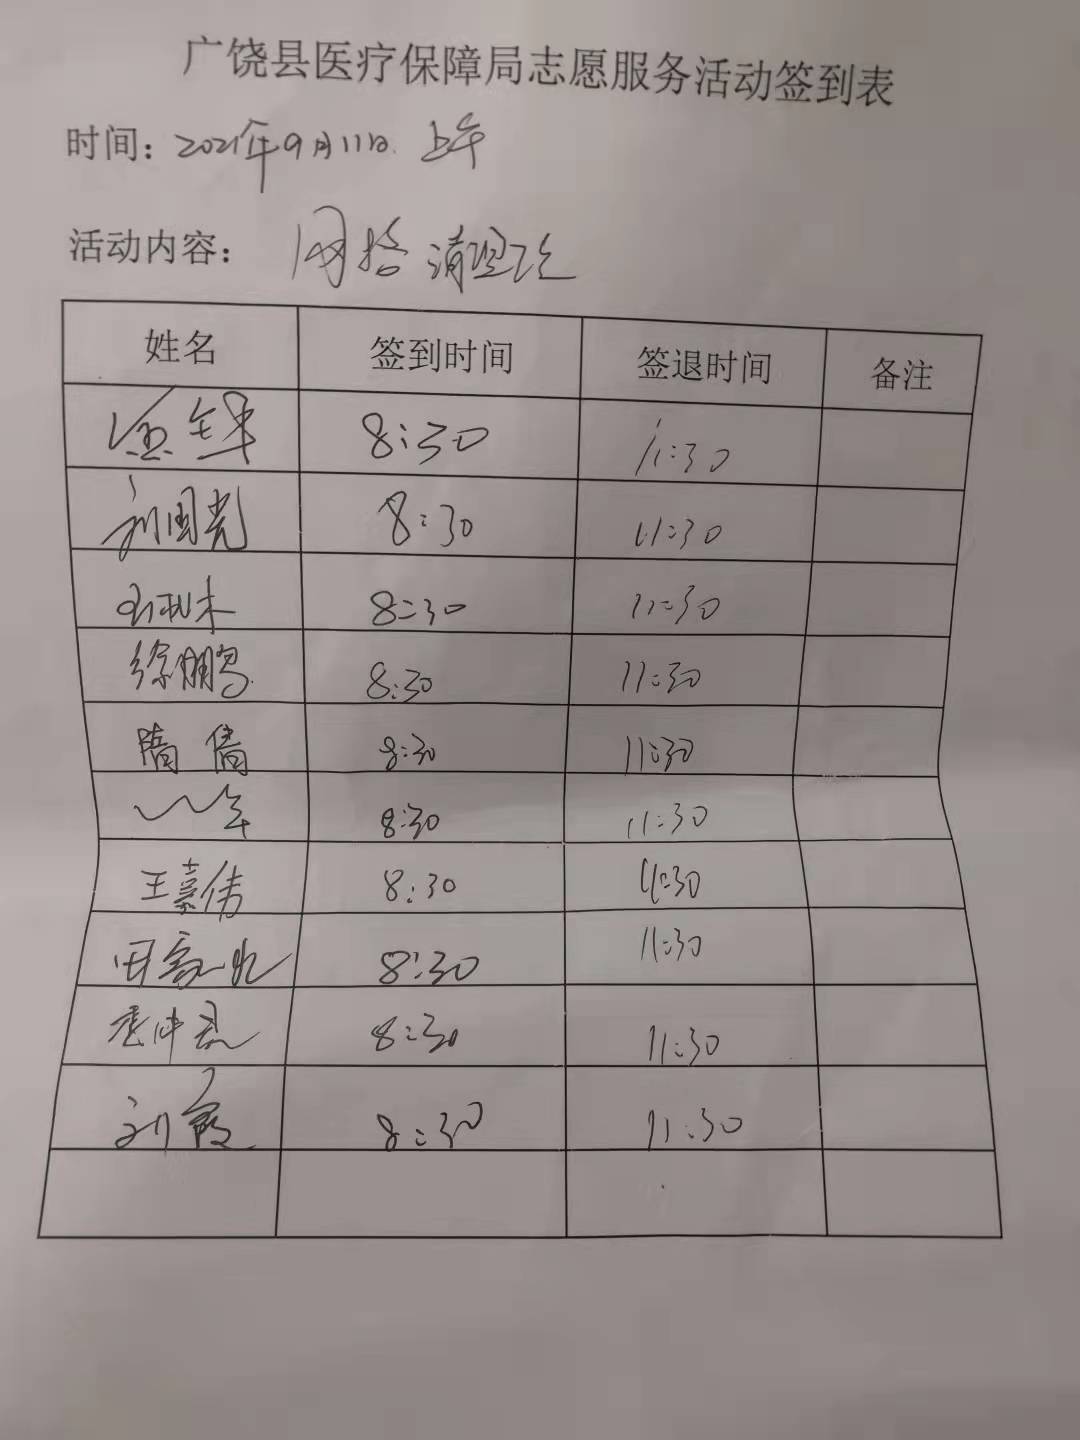 广饶县医疗保障局志愿服务活动签到表
时间：2021年9月11日 上午
活动内容：网格清理
姓名 签到时间 签退时间 备注
8:30 11:30
刘国光 8:30 11:30
8:30 11:30
徐鹏鸟 8:30 11:30
隋倩 8:30 11:30
8:30 11:30
王嘉伟 8:30 11:30
田 8:30 11:30
8:30 11:30
刘霞 8:30 11:30